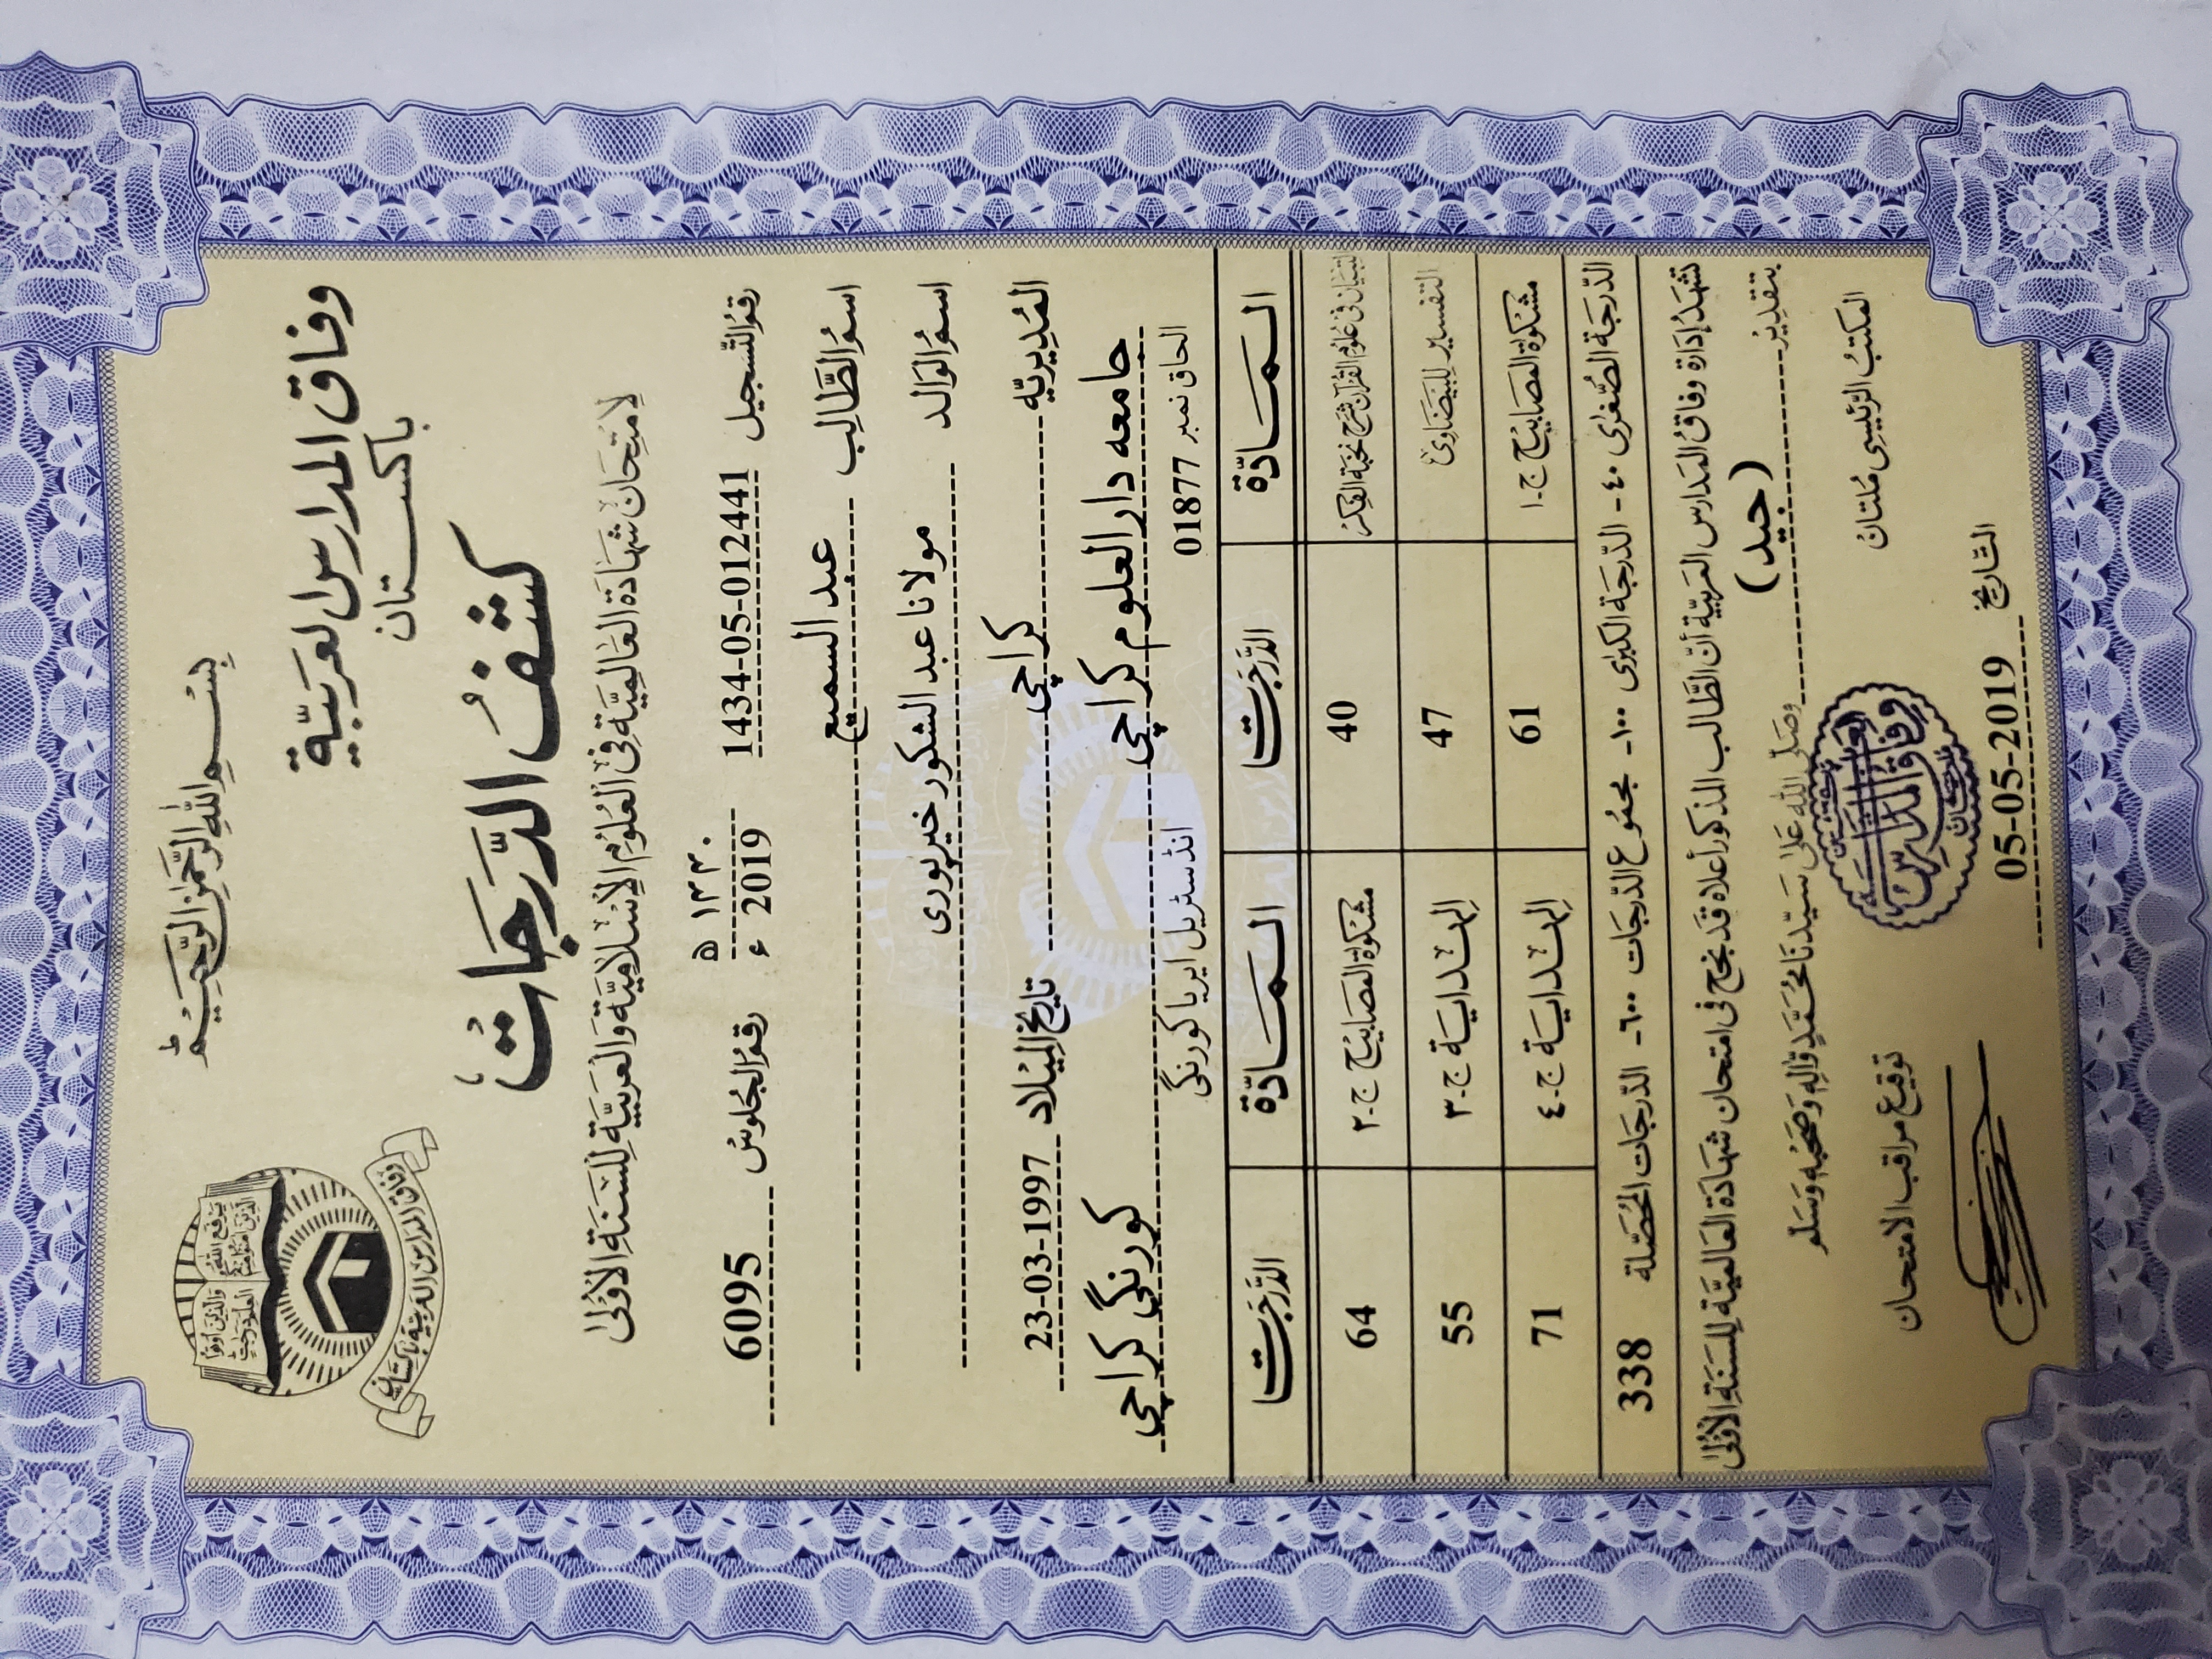 بِسْمِ اللهِ الرَّحْمٰنِ الرَّحِيْمِ ط
وفاق المدارس العربيّة
باكستان
كشفُ الدَّرَجَاتُ
لِامتِحَان شَهَادَة العَالِمِيَّة فِی العُلُوْمِ الاِسْلَامِيَّة وَالعَرَبِيَّة لِلسَّنَةِ الْأُوْلٰى
رقمُ التّسجيل 1434-05-012441 ١٤٤٠ ھ 2019 ء رقمُ الجُلوسُ 6095
اسمُ الطَّالِب عبد السميع
اسمُ الوَالد مولانا عبد الشكور خيرپوری
المُدِيريّه کراچی تاریخ المِيْلاد 23-03-1997
جامعه دار العلوم کراچی کورنگی کراچی
الحاق نمبر 01877 انڈسٹریل ایریا کورنگی
المَادّة الدَّرَجَات المَادّة الدَّرَجَات
التبيان فی علوم القرآن شرح نخبة الفكر 40 مشكوة المصابيح ج-٢ 64
التفسير للبيضاوی 47 الهداية ج-٣ 55
مشكوة المصابيح ج-١ 61 الهداية ج-٤ 71
الدّرجَة الصُّغرٰى ٤٠- الدّرجَة الكبرٰى ١٠٠- مجمُوع الدّرجَات ٦٠٠- الدّرجَات المُحَصَّلة 338
تَشهَدُ إدَارة وفاقُ المَدارس العَربيَّة أنّ الطَّالب المذكور أعلاه قَد نجح فی امتحان شَهَادَة العَالميَّة لِلسَّنَةِ الْأُوْلٰى
بتقدِيرُ (جيد) وصَلَّى الله عَلىٰ سَيِّدنَا مُحَمَّدٍ وَّاٰلِهٖ وَصَحْبِهٖ وَسَلَّم
المَكتبُ الرّئيسِی مُلتانُ توقيع مراقب الامتحان
وفاق المدارس العربية
التّاریخ 05-05-2019
يَرْفَعِ اللهُ الَّذِيْنَ اٰمَنُوْا مِنْكُمْ
وَالَّذِيْنَ اُوْتُوا الْعِلْمَ دَرَجٰتٍ
وفاق المدارس العربية باكستان